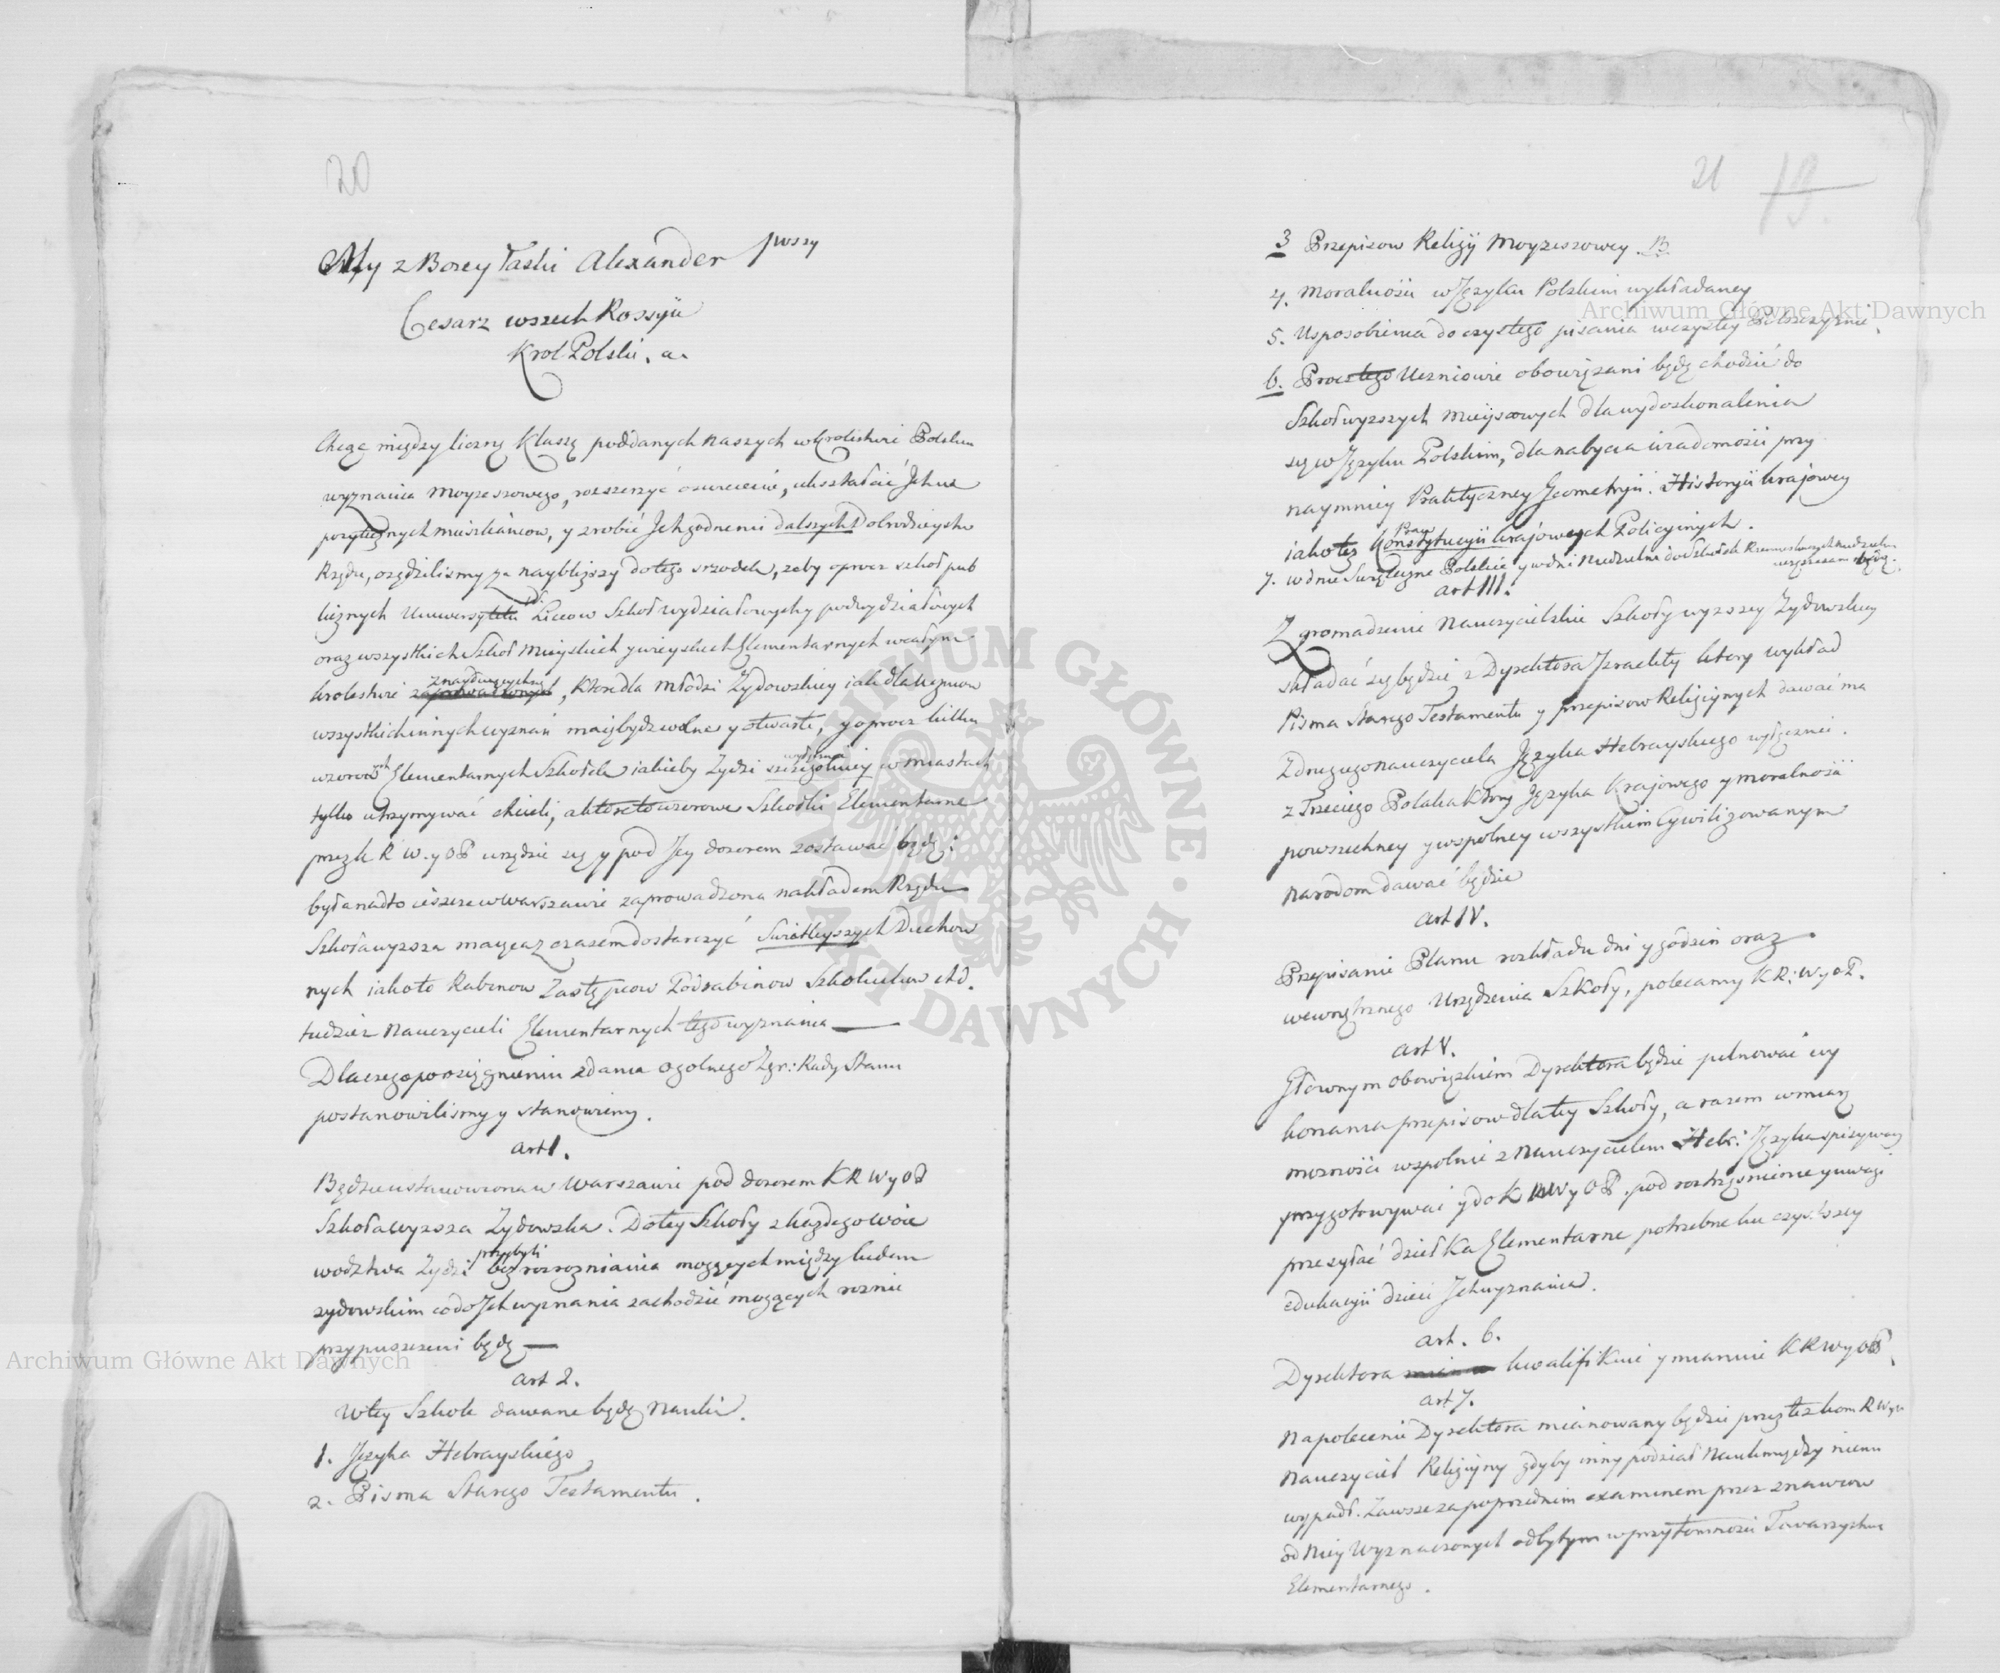 20
My z Bozey Łaski Alexander pwszy
Cesarz wszech Rossyii
Krol Polski. a.
Chcąc między liczną Klassą poddanych naszych w Krolestwie Polskim
wyznania Moyzeszowego, rozszerzyć oswiecenie, ukształcić Ich na
pozytecznych mieszkańcow, y zrobić Ich godnemi dalszych Dobrodzieystw
Rządu, osądziliśmy za naybliższy do tego srzodek, zeby oprocz szkoł pub
licznych Uniwersytetu Liceow Szkoł wydziałowych y podwydziałowych
oraz wszystkich Szkoł Mieyskich y wieyskich Elementarnych w całym
Krolestwie zaprowadzonych znayduiących się, które dla młodzi Żydowskiey iak dla Uczniow
wszystkich innych wyznań maią bydz wolne y otwarte, y oprocz kilku
wzorowych Elementarnych Szkołek iakieby Żydzi szczegolniey w miastach
tylko utrzymywać chcieli, a ktore to wzorowe Szkołki Elementarne
przez K R W. y O P urządzić się y pod Jey dozorem zostawać będą:
była nadto ieszcze w Warszawie zaprowadzona nakładem Rządu
Szkoła wyzsza maiąca z czasem dostarczyć Swiatleyszych Duchow
nych iako to Rabinow Zastępcow Podrabinow Szkolnikow etd.
tudziez Nauczycieli Elementarnych tego wyznania —
Dla czego po osiągnieniu zdania ogolnego Zgr: Rady Stanu
postanowilismy y stanowiemy.
art 1.
Będzie ustanowiona w Warszawie pod dozorem K R W y O P
Szkoła wyzsza Żydowska. Do tey Szkoły z kazdego Woie
wodztwa Żydzi przybyli bez rozrozniania mogących między ludem
zydowskim co do Ich wyznania zachodzić mogących roznic
przypuszczeni będą —
art 2.
W tey Szkole dawane będą Nauki.
1. Języka Hebrayskiego
2. Pisma Starego Testamentu.
21 19.
3 Przepisow Religij Moyzeszowey. B
4. Moralności w Języku Polskim wykładaney
5. Usposobienia do czystego pisania w czystey Polszczyznie.
6. Procz tego Uczniowie obowiązani będą chodzić do
Szkoł wyzszych mieyscowych dla wydoskonalenia
się w Języku Polskim, dla nabycia wiadomosci przy
naymniey Praktyczney Geometryii. Historyii krajowey
iako też Konstytucyii Praw krajowych Policyinych.
7. w dnie Swiąteczne Polskie y w dni Niedzielne do Szkołek Rzemieslniczych niedzieln
uczęszczać będą.
art III.
Zgromadzenie Nauczycielskie Szkoły wyzszey Żydowskiey
składać się będzie z Dyrektora Izraelity ktory wykład
Pisma Starego Testamentu y przepisow Religiynych dawać ma
Z drugiego nauczyciela Języka Hebrayskiego wyłącznie.
z Trzeciego Polaka który Języka Krajowego y moralności
powszechney y wspolney wszystkim Cywilizowanym
Narodom dawać będzie
art IV.
Przepisanie Planu rozkładu dni y godzin oraz
wewnętrznego Urządzenia Szkoły, polecamy K R: W y O P.
art V.
Głównym obowiązkiem Dyrektora będzie pilnować wy
konania przepisow dla tey Szkoły, a razem w miarę
moznosci wspolnie z Nauczycielem Hebr: Języka spisywać
przygotowywać y do K R W y O P. pod roztrząsnienie y uwagi
przesyłać dziełka Elementarne potrzebne ku czystszey
edukacyii dzieci Ich wyznania.
art. 6.
Dyrektora kwalifikuie y mianuie K R W y O P.
art 7.
Na polecenie Dyrektora mianowany będzie przez tez Kom R W y o
Nauczyciel Religiyny gdyby inny podział Nauk między niemi
wypadł. Zawsze za poprzednim examinem przez znawcow
od Niey Wyznaczonych odbytym w przytomnosci Towarzystwa
Elementarnego.
Archiwum Główne Akt Dawnych
Archiwum Główne Akt Dawnych
ARCHIWUM GŁÓWNE AKT DAWNYCH